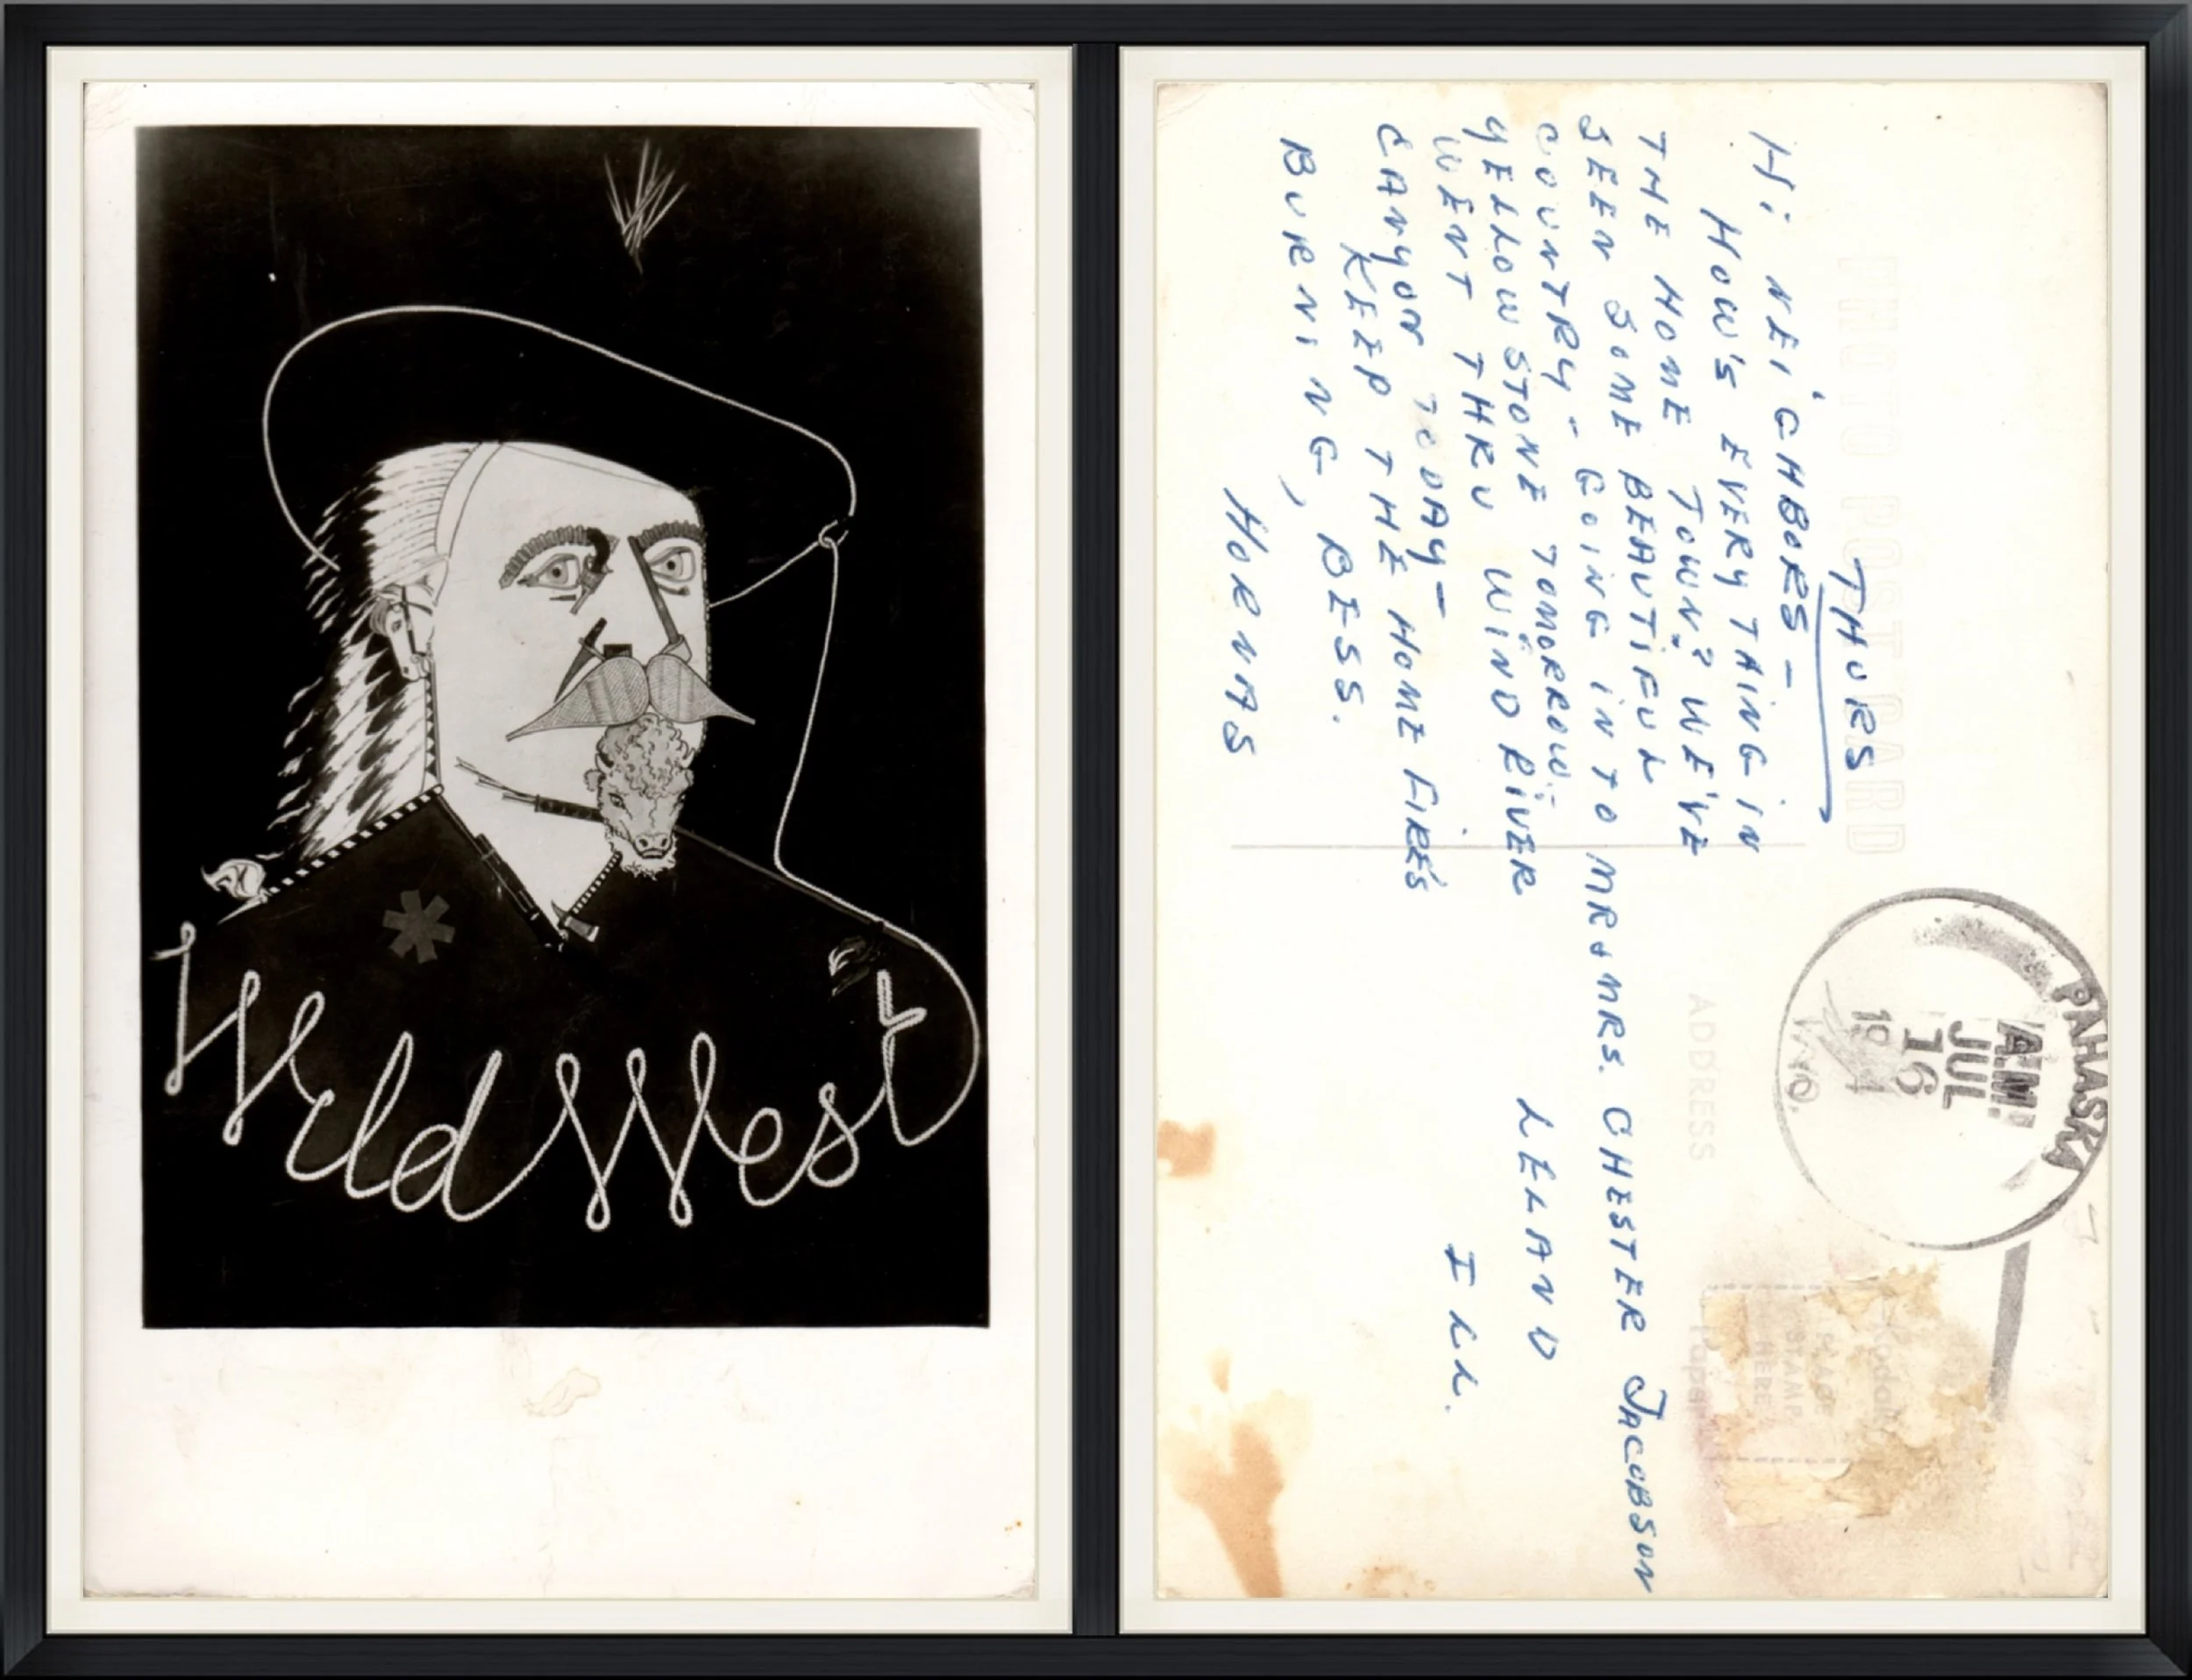 Wild West
PHOTO POST CARD
THURS
Hi NEiGHBORS -
HOW'S EVERYTHING iN
THE HOME TOWN? WE'VE
SEEN SOME BEAUTiFUL
COUNTRY - GOiNG iNTO
YELLOWSTONE TOMORROW -
WENT THRU WiND RiVER
CANYON TODAY -
KEEP THE HOME FiRES
BURNiNG, BESS.
HORNAS
PAHASKA
AM
JUL
16
19
WYO.
Kodak
PLACE
STAMP
HERE
Paper
ADDRESS
MR & MRS. CHESTER JACOBSON
LELAND
ILL.